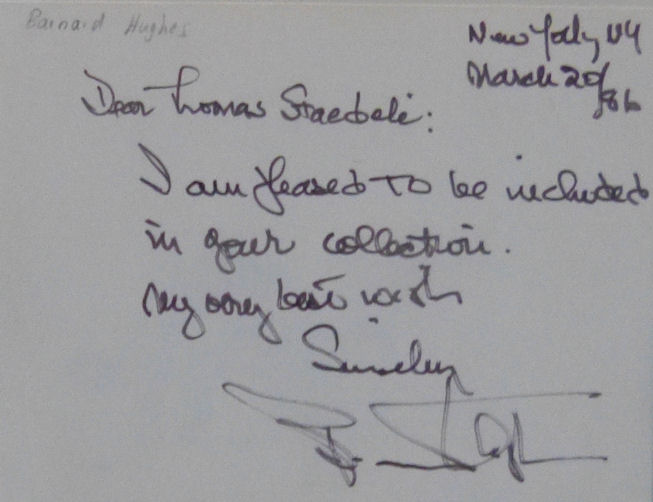 Barnard Hughes
New York, NY
March 20/86
Dear Thomas Staedeli:
I am pleased to be included
in your collection.
My very best wish
Sincerely